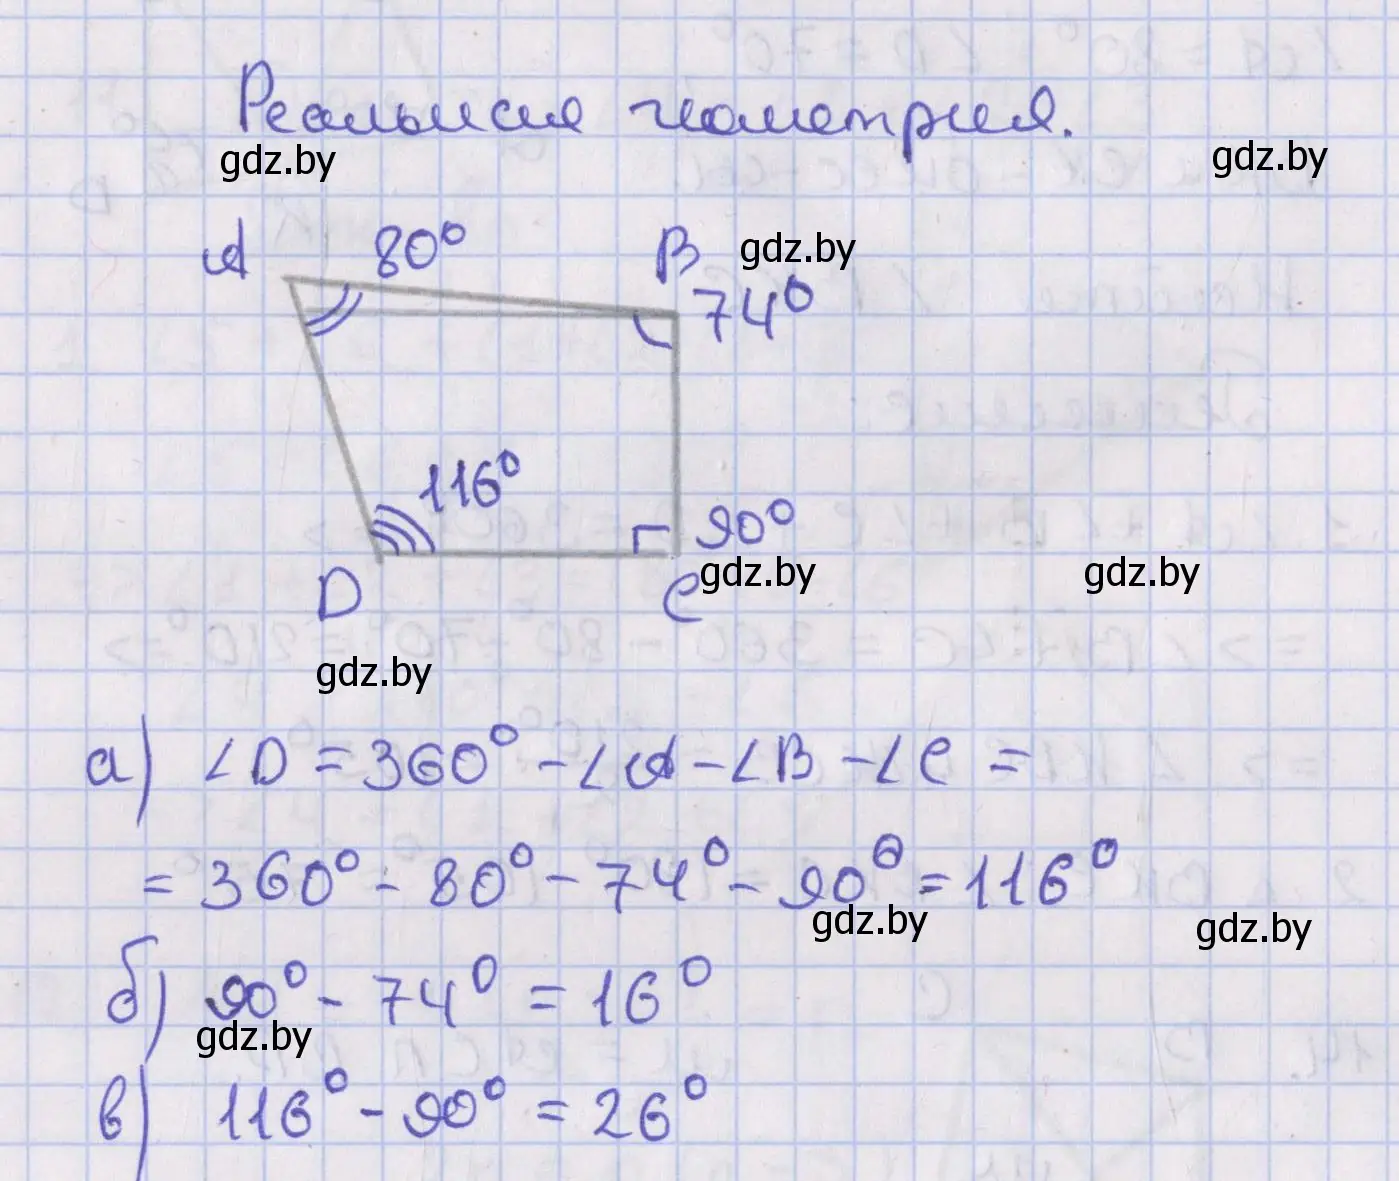 Реальная геометрия.
gdz.by
gdz.by
A 80° B gdz.by
74°
116°
90°
gdz.by
gdz.by
D C
gdz.by
а) ∠D = 360° - ∠A - ∠B - ∠C =
= 360° - 80° - 74° - 90° = 116°
gdz.by
gdz.by
б) 90° - 74° = 16°
gdz.by
в) 116° - 90° = 26°